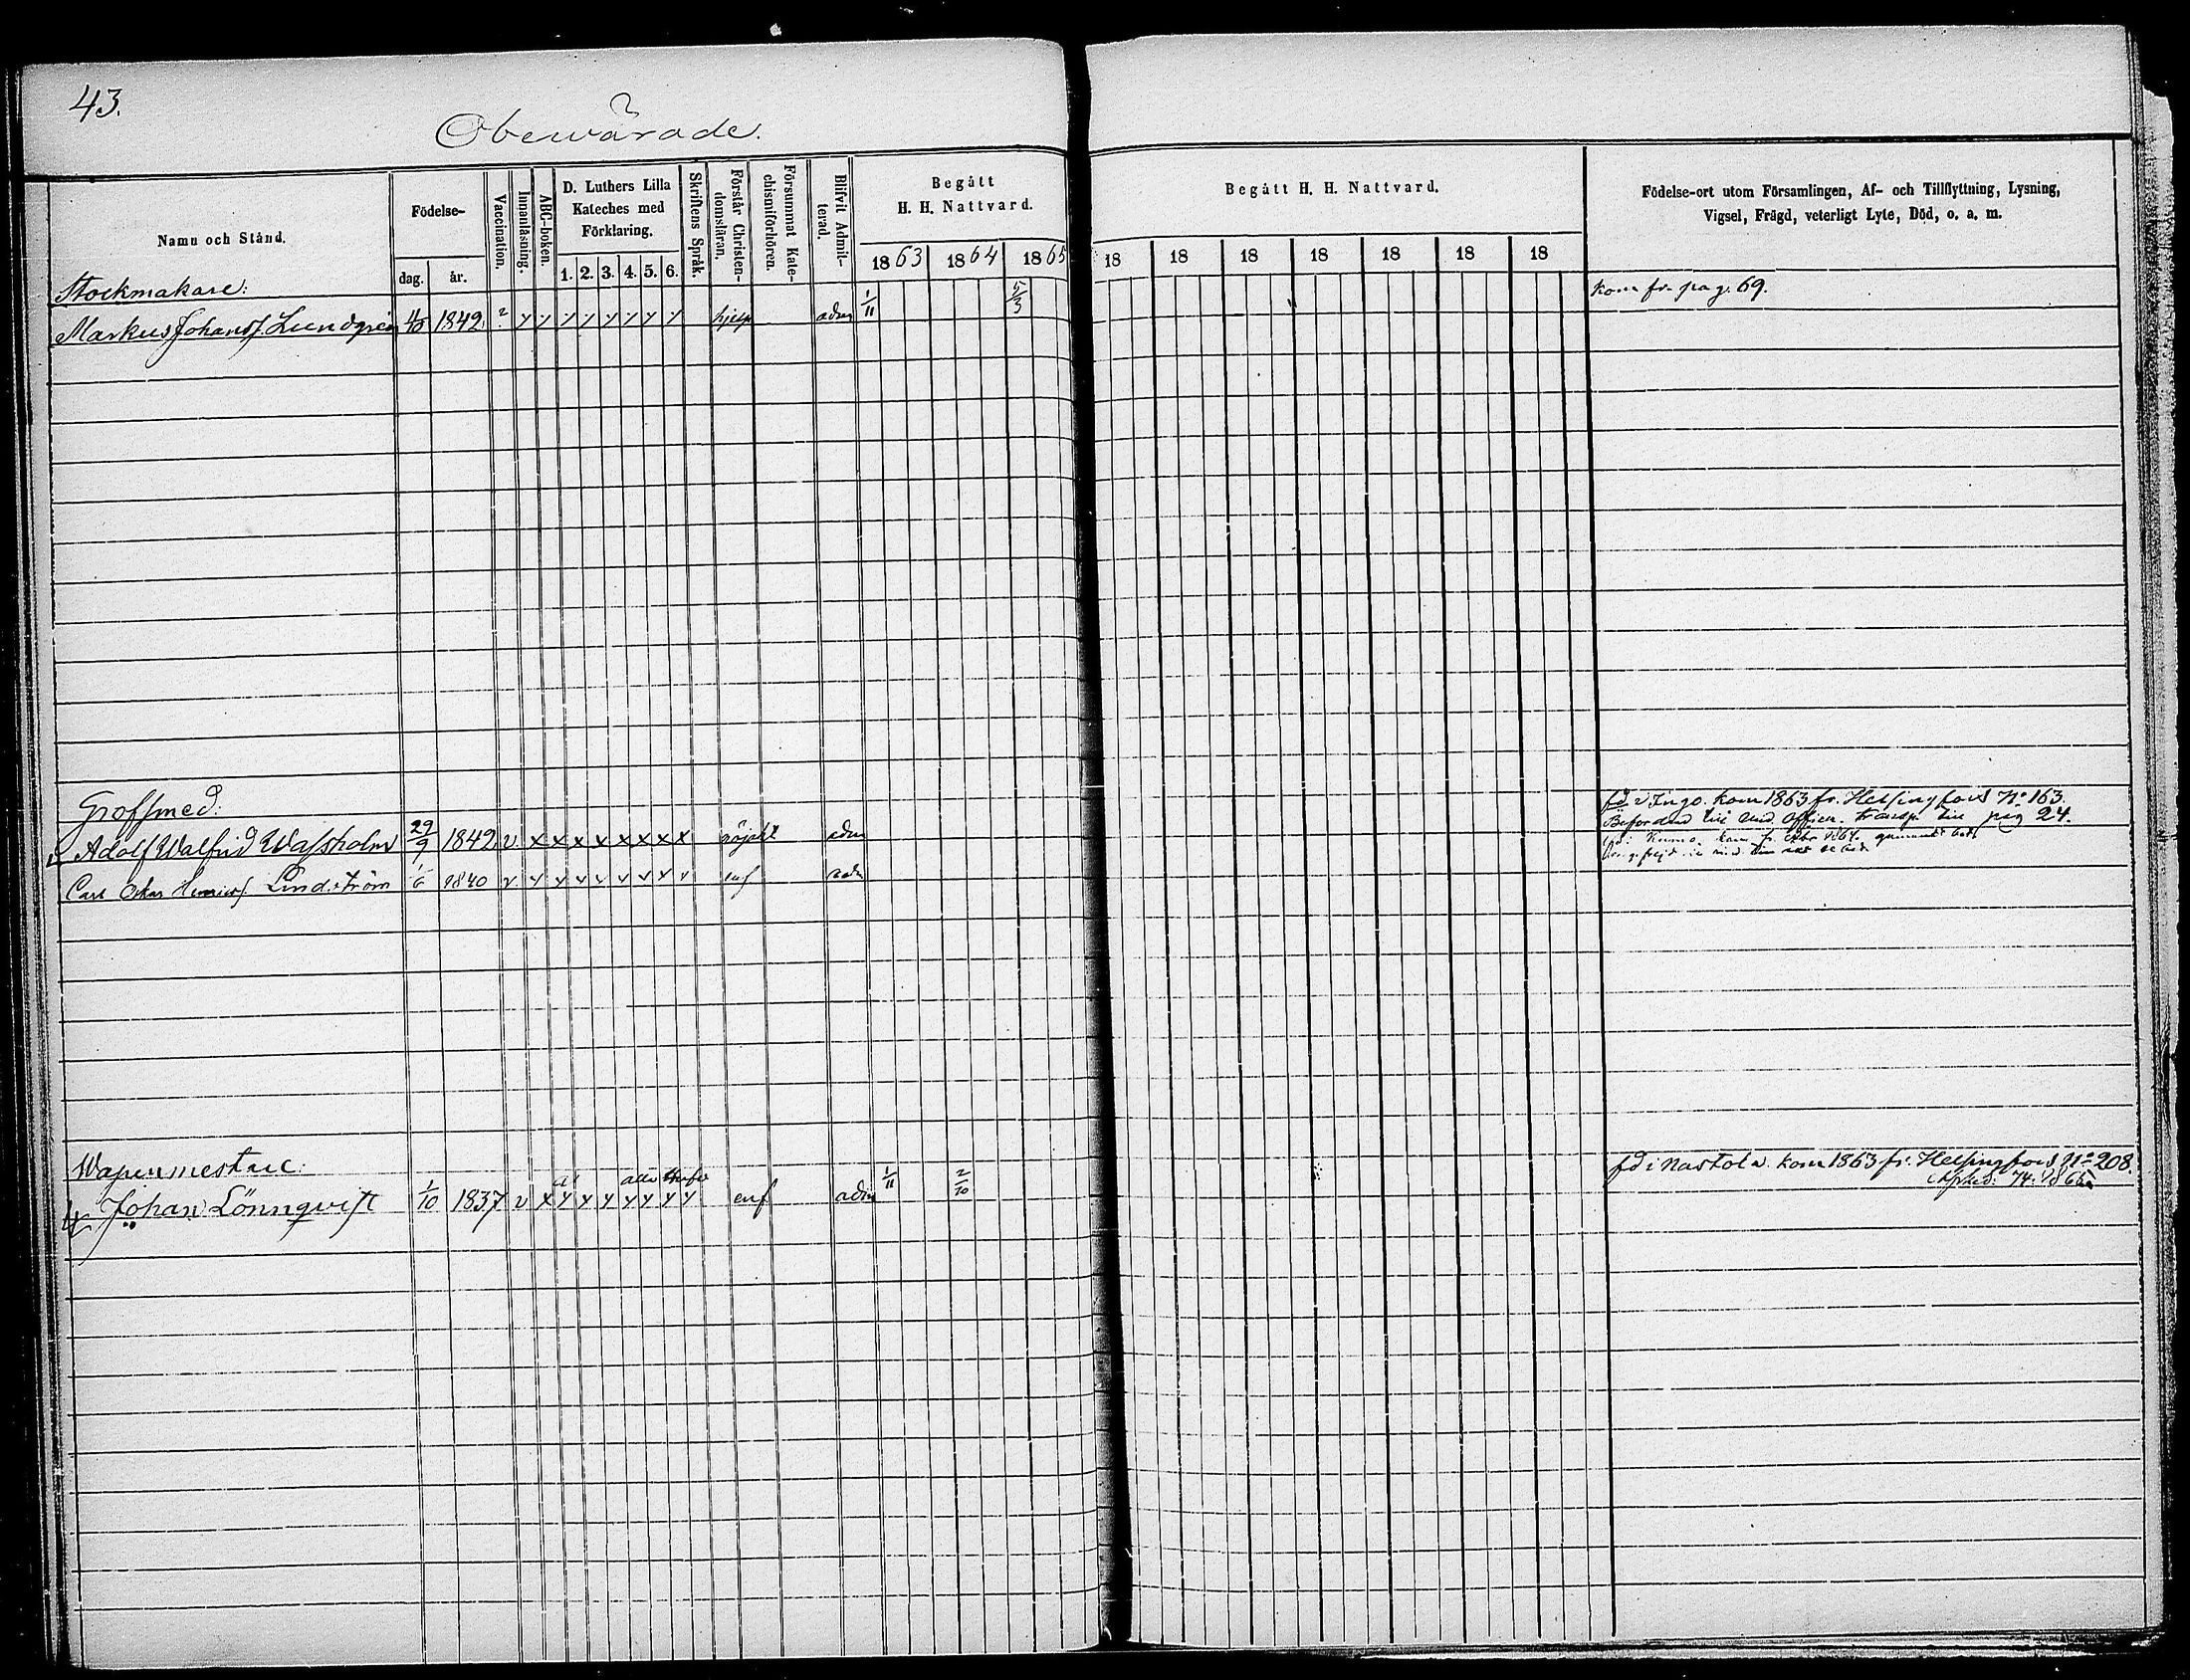 43.
Obewärade.
Namn och Stånd.
Födelse-
dag. år.
Vaccination.
Innanläsning.
ABC-boken.
D. Luthers Lilla
Kateches med
Förklaring.
1. 2. 3. 4. 5. 6.
Skriftens Språk.
Förstår Christen-
domsläran.
Försummat Kate-
chismiförhören.
Blifvit Admit-
terad.
Begått
H. H. Nattvard.
1863 1864 1865
Begått H. H. Nattvard.
18 18 18 18 18 18 18
Födelse-ort utom Församlingen, Af- och Tillflyttning, Lysning,
Vigsel, Frägd, veterligt Lyte, Död, o. a. m.
Stockmakare:
Markus Johansf. Lundgren 4/10 1842. ? y y y y y y y y hjelp adm 1/11 5/3 kom fr. pag. 69.
Grofsmed:
Adolf Walfrid Wafsholm 29/9 1842 v. x x x x x x x x nöjakt adm
fd i Ingo. kom 1863 fr. Helsingfors No 163
Befordrad till Und. Officer. transp. till pag 24.
Carl Oskar Lindström 1/6 1840 v y y y y y y y v enf adm
kom fr. 1864.
Wapenmestare:
Johan Lönnqvist 1/10 1837 v x y y y y y y y enf adm 1/11 2/10
fd i Nastola. kom 1863 fr. Helsingfors No 208.